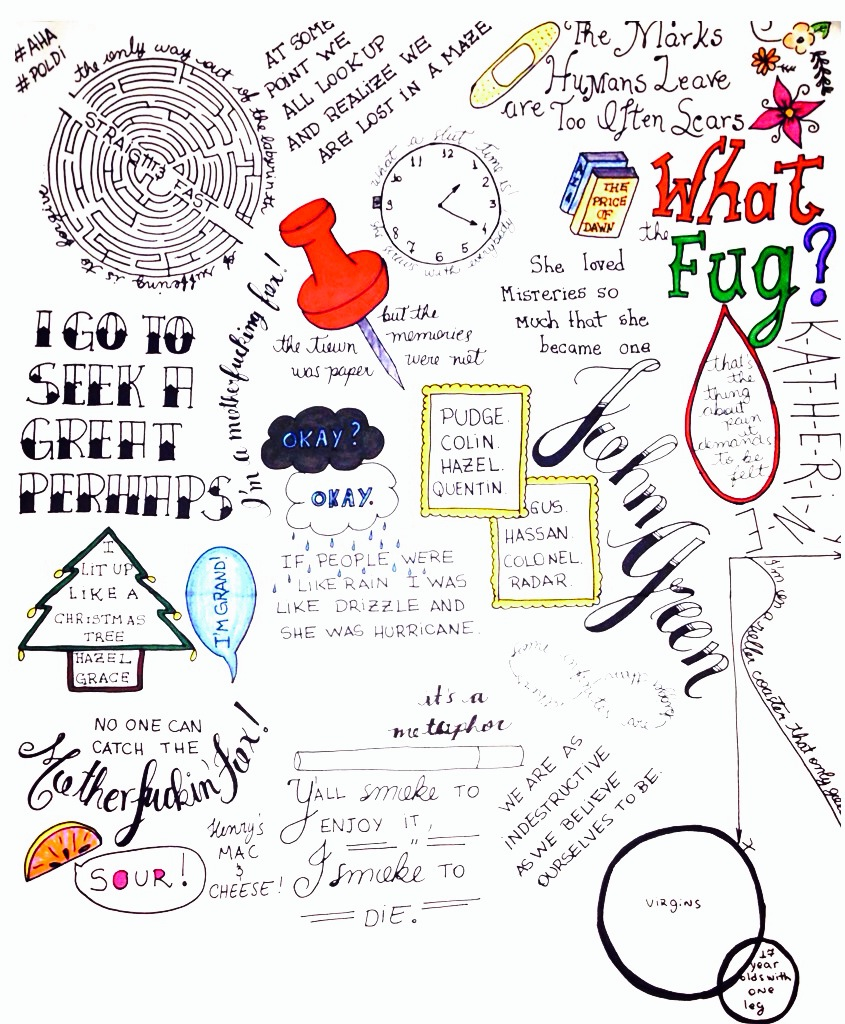 #AHA
#POLDi
the only way out of the labyrinth
of suffering is to forgive
STRAIGHT & FAST
AT SOME
POINT WE
ALL LOOK UP
AND REALIZE WE
ARE LOST IN A MAZE
The Marks
Humans Leave
are Too Often Scars
what a slut time is!
she screws with everybody
11 12 1
2
3
4
5
6
7
8
9
10
AHA
THE
PRICE
OF
DAWN
What
the
Fug?
She loved
Misteries so
much that she
became one
the town
was paper
but the
memories
were not
I'm a motherfucking fox!
I GO TO
SEEK A
GREAT
PERHAPS
OKAY?
OKAY.
PUDGE.
COLIN.
HAZEL.
QUENTIN.
GUS.
HASSAN.
COLONEL.
RADAR.
John Green
that's
the
thing
about
pain
it
demands
to be
felt
K-A-T-H-E-R-I-N-E
I
LIT UP
LIKE A
CHRISTMAS
TREE
HAZEL
GRACE
I'M GRAND!
IF PEOPLE WERE
LIKE RAIN I WAS
LIKE DRIZZLE AND
SHE WAS HURRICANE.
some infinities are
I'm on a roller coaster that only goes
x
it's a
metaphor
NO ONE CAN
CATCH THE
Motherfuckin' Fox!
Y'ALL smoke TO
ENJOY IT,
I smoke TO
DIE.
WE ARE AS
INDESTRUCTIVE
AS WE BELIEVE
OURSELVES TO BE.
SOUR!
Henry's
MAC
&
CHEESE!
VIRGINS
17
year
olds with
ONE
leg